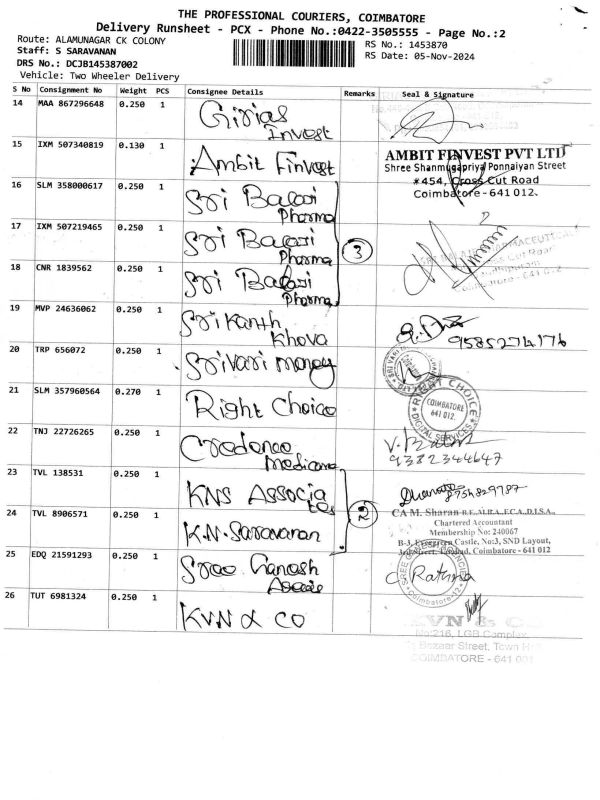 THE PROFESSIONAL COURIERS, COIMBATORE
Delivery Runsheet - PCX - Phone No.:0422-3505555 - Page No.:2
Route: ALAMUNAGAR CK COLONY
RS No.: 1453870
Staff: S SARAVANAN
RS Date: 05-Nov-2024
DRS No.: DCJB145387002
Vehicle: Two Wheeler Delivery
S No Consignment No Weight PCS Consignee Details Remarks Seal & Signature
14 MAA 867296648 0.250 1 Girias
Invest
15 IXM 507340819 0.130 1 Ambit Finvest
AMBIT FINVEST PVT LTD
Shree Shanmugapriya Ponnaiyan Street
*454, Cross Cut Road
Coimbatore - 641 012.
16 SLM 358000617 0.250 1 Sri Balaji
Pharma
17 IXM 507219465 0.250 1 Sri Balaji
Pharma
3
18 CNR 1839562 0.250 1 Sri Balaji
Pharma
19 MVP 24636062 0.250 1 Srikanth
Khova
9585274176
20 TRP 656072 0.250 1 Srivari money
21 SLM 357960564 0.270 1 Right Choice
RIGHT CHOICE
COIMBATORE
641 012.
DIGITAL SERVICES
22 TNJ 22726265 0.250 1 Credence
Medicare
9382344647
23 TVL 138531 0.250 1 KNS Associa
tes
2
8754829787
24 TVL 8906571 0.250 1 K.N. Saravanan
CA M. Sharan B.E.,M.B.A.,F.C.A.,D.I.S.A.,
Chartered Accountant
Membership No: 240067
B-3, Evergreen Castle, No:3, SND Layout,
3rd Street, Tatabad, Coimbatore - 641 012
25 EDQ 21591293 0.250 1 Sree Ganesh
Rathna
Coimbatore-12
26 TUT 6981324 0.250 1 KVN & CO
KVN & CO
No:216, LGB Complex,
Bazaar Street, Town
COIMBATORE - 641 001